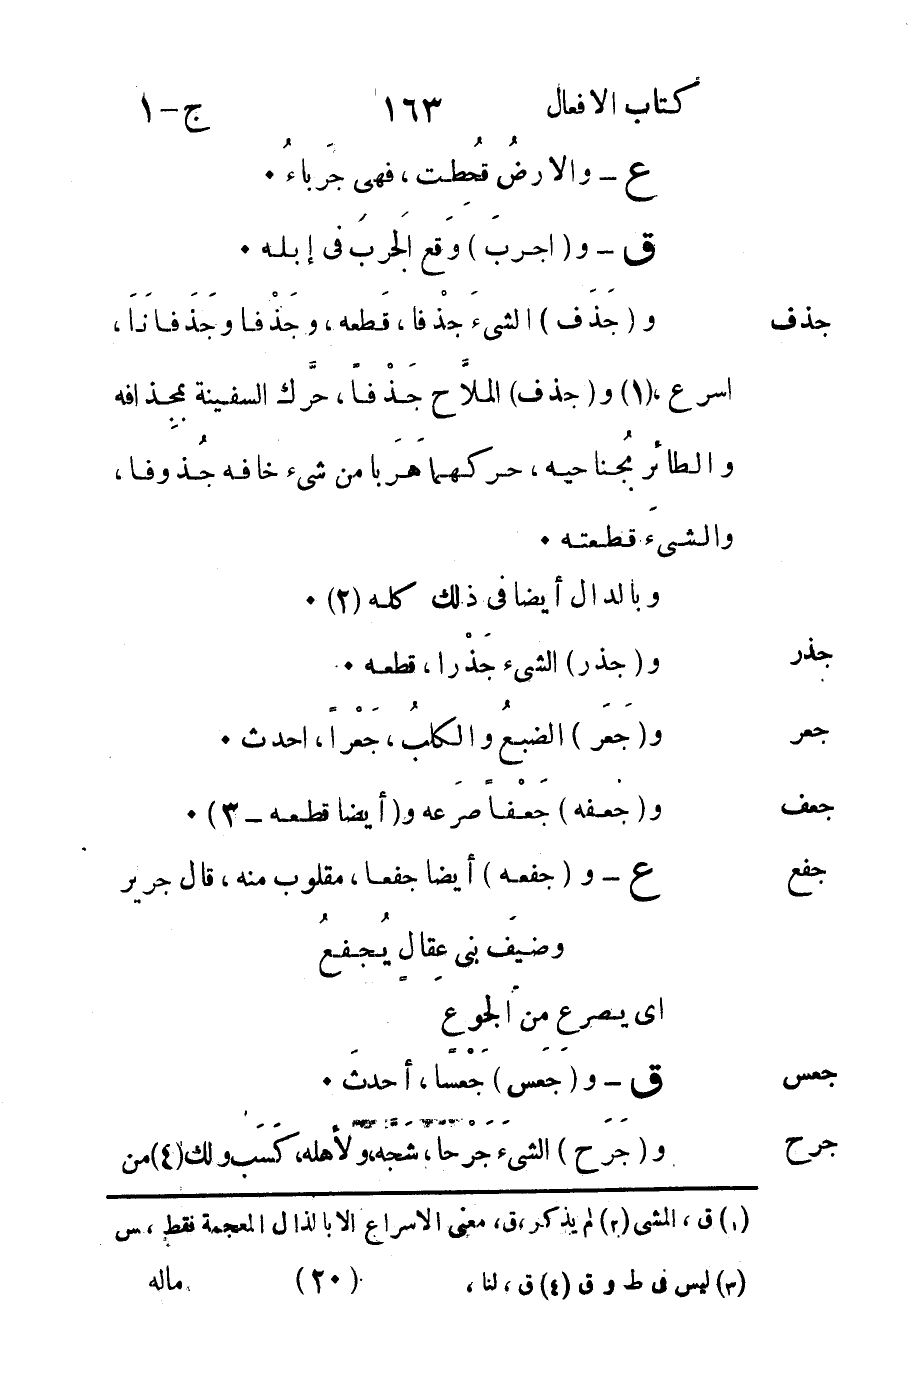 كتاب الافعال ١٦٣ ج-١
ع - والارضُ قُحُطت ، فهى جَرباءُ ٠
ق - و ( اجربَ ) وَقع الجَربُ فى إبله ٠
جذف و ( جَذَف ) الشىءَ جَذْفا ، قَطعه ، و جَذْفا وجَذَفانَا ،
اسرع ،(١) و ( جذف) الملاَّح جَذْفاً ، حرَّك السفينة بمجذافه
والطائرُ بجناحيه ، حركهما هَرَبا من شىء خافه جُذوفا ،
والشىءَ قطعته ٠
وبالدال أيضا فى ذلك كله (٢) ٠
جذر و ( جذر ) الشىء جَذْرا ، قطعه ٠
جعر و ( جَعَر ) الضبعُ والكلبُ ، جَعْراً ، احدث ٠
جعف و ( جعفه ) جَعْفاً صرَعه و ( أيضا قطعه - ٣ ) ٠
جفع ع - و ( جفعه ) أيضا جفعا ، مقلوب منه ، قال جرير
وضيفَ بنى عقالٍ يُجفعُ
اى يصرع مِن الجوُع
جعس ق - و ( جَعَس ) جَعْسًا ، أحدثَ ٠
جرح و ( جَرَح ) الشىءَ جَرحا ، شجه، ولأهله، كَسَب ولك(٤)من
(١) ق ، المشى (٢) لم يذكر ،ق، معنى الاسراع الا بالذال المعجمة فقط ، س
(٣) ليس فى ط و ق (٤) ق ، لنا ، (٢٠) ماله